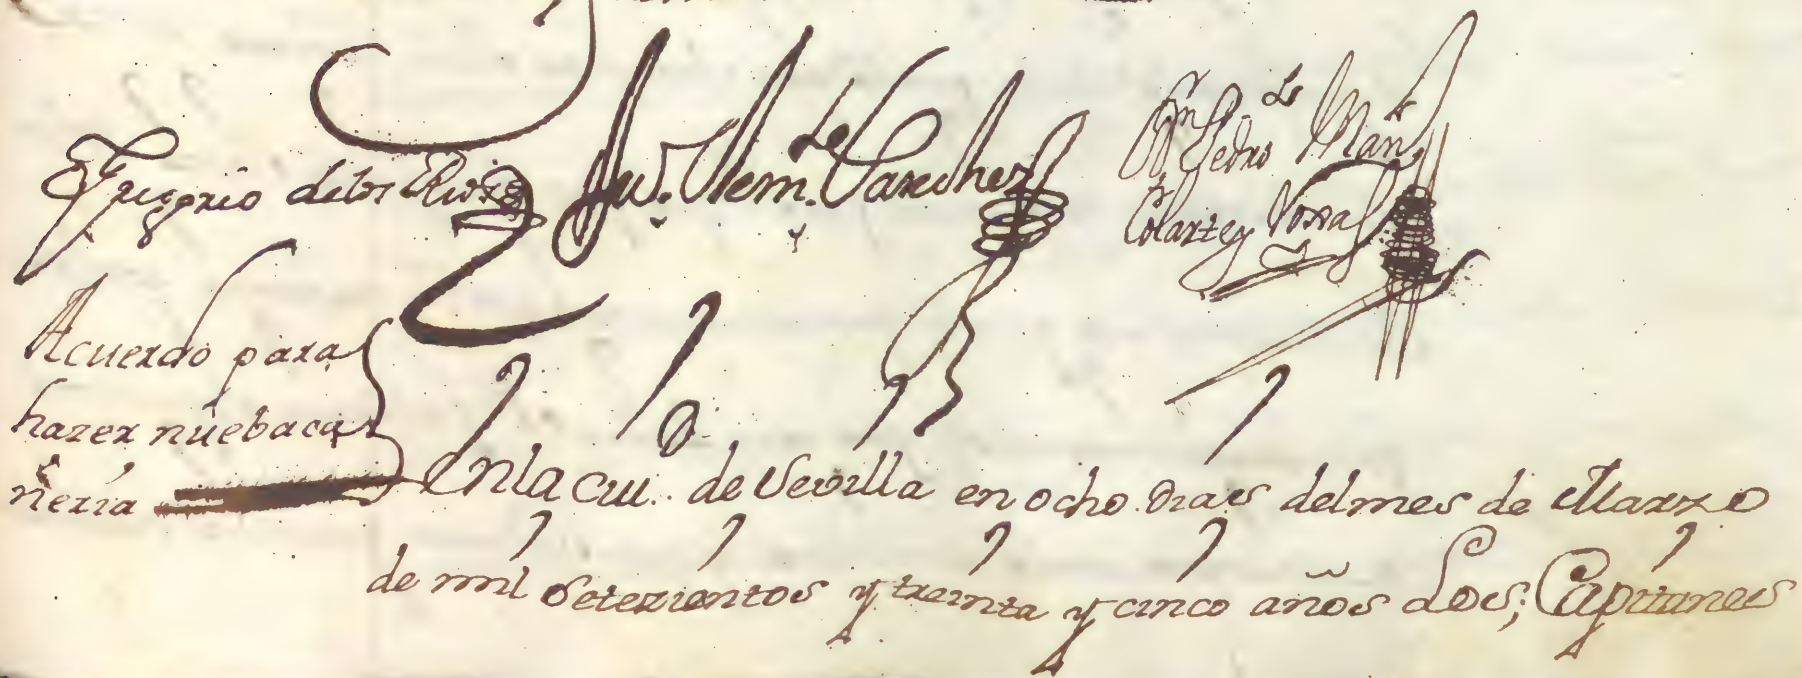 Gregorio delos Rios
Ju. Clem. de Sanchez
Dn Pedro de Man
Colarte y
Acuerdo para
hazer nueba ca
ñeria
En la Ciu. de Sevilla en ocho dias del mes de Marzo
de mil setezientos y treinta y cinco años Los; Capitanes